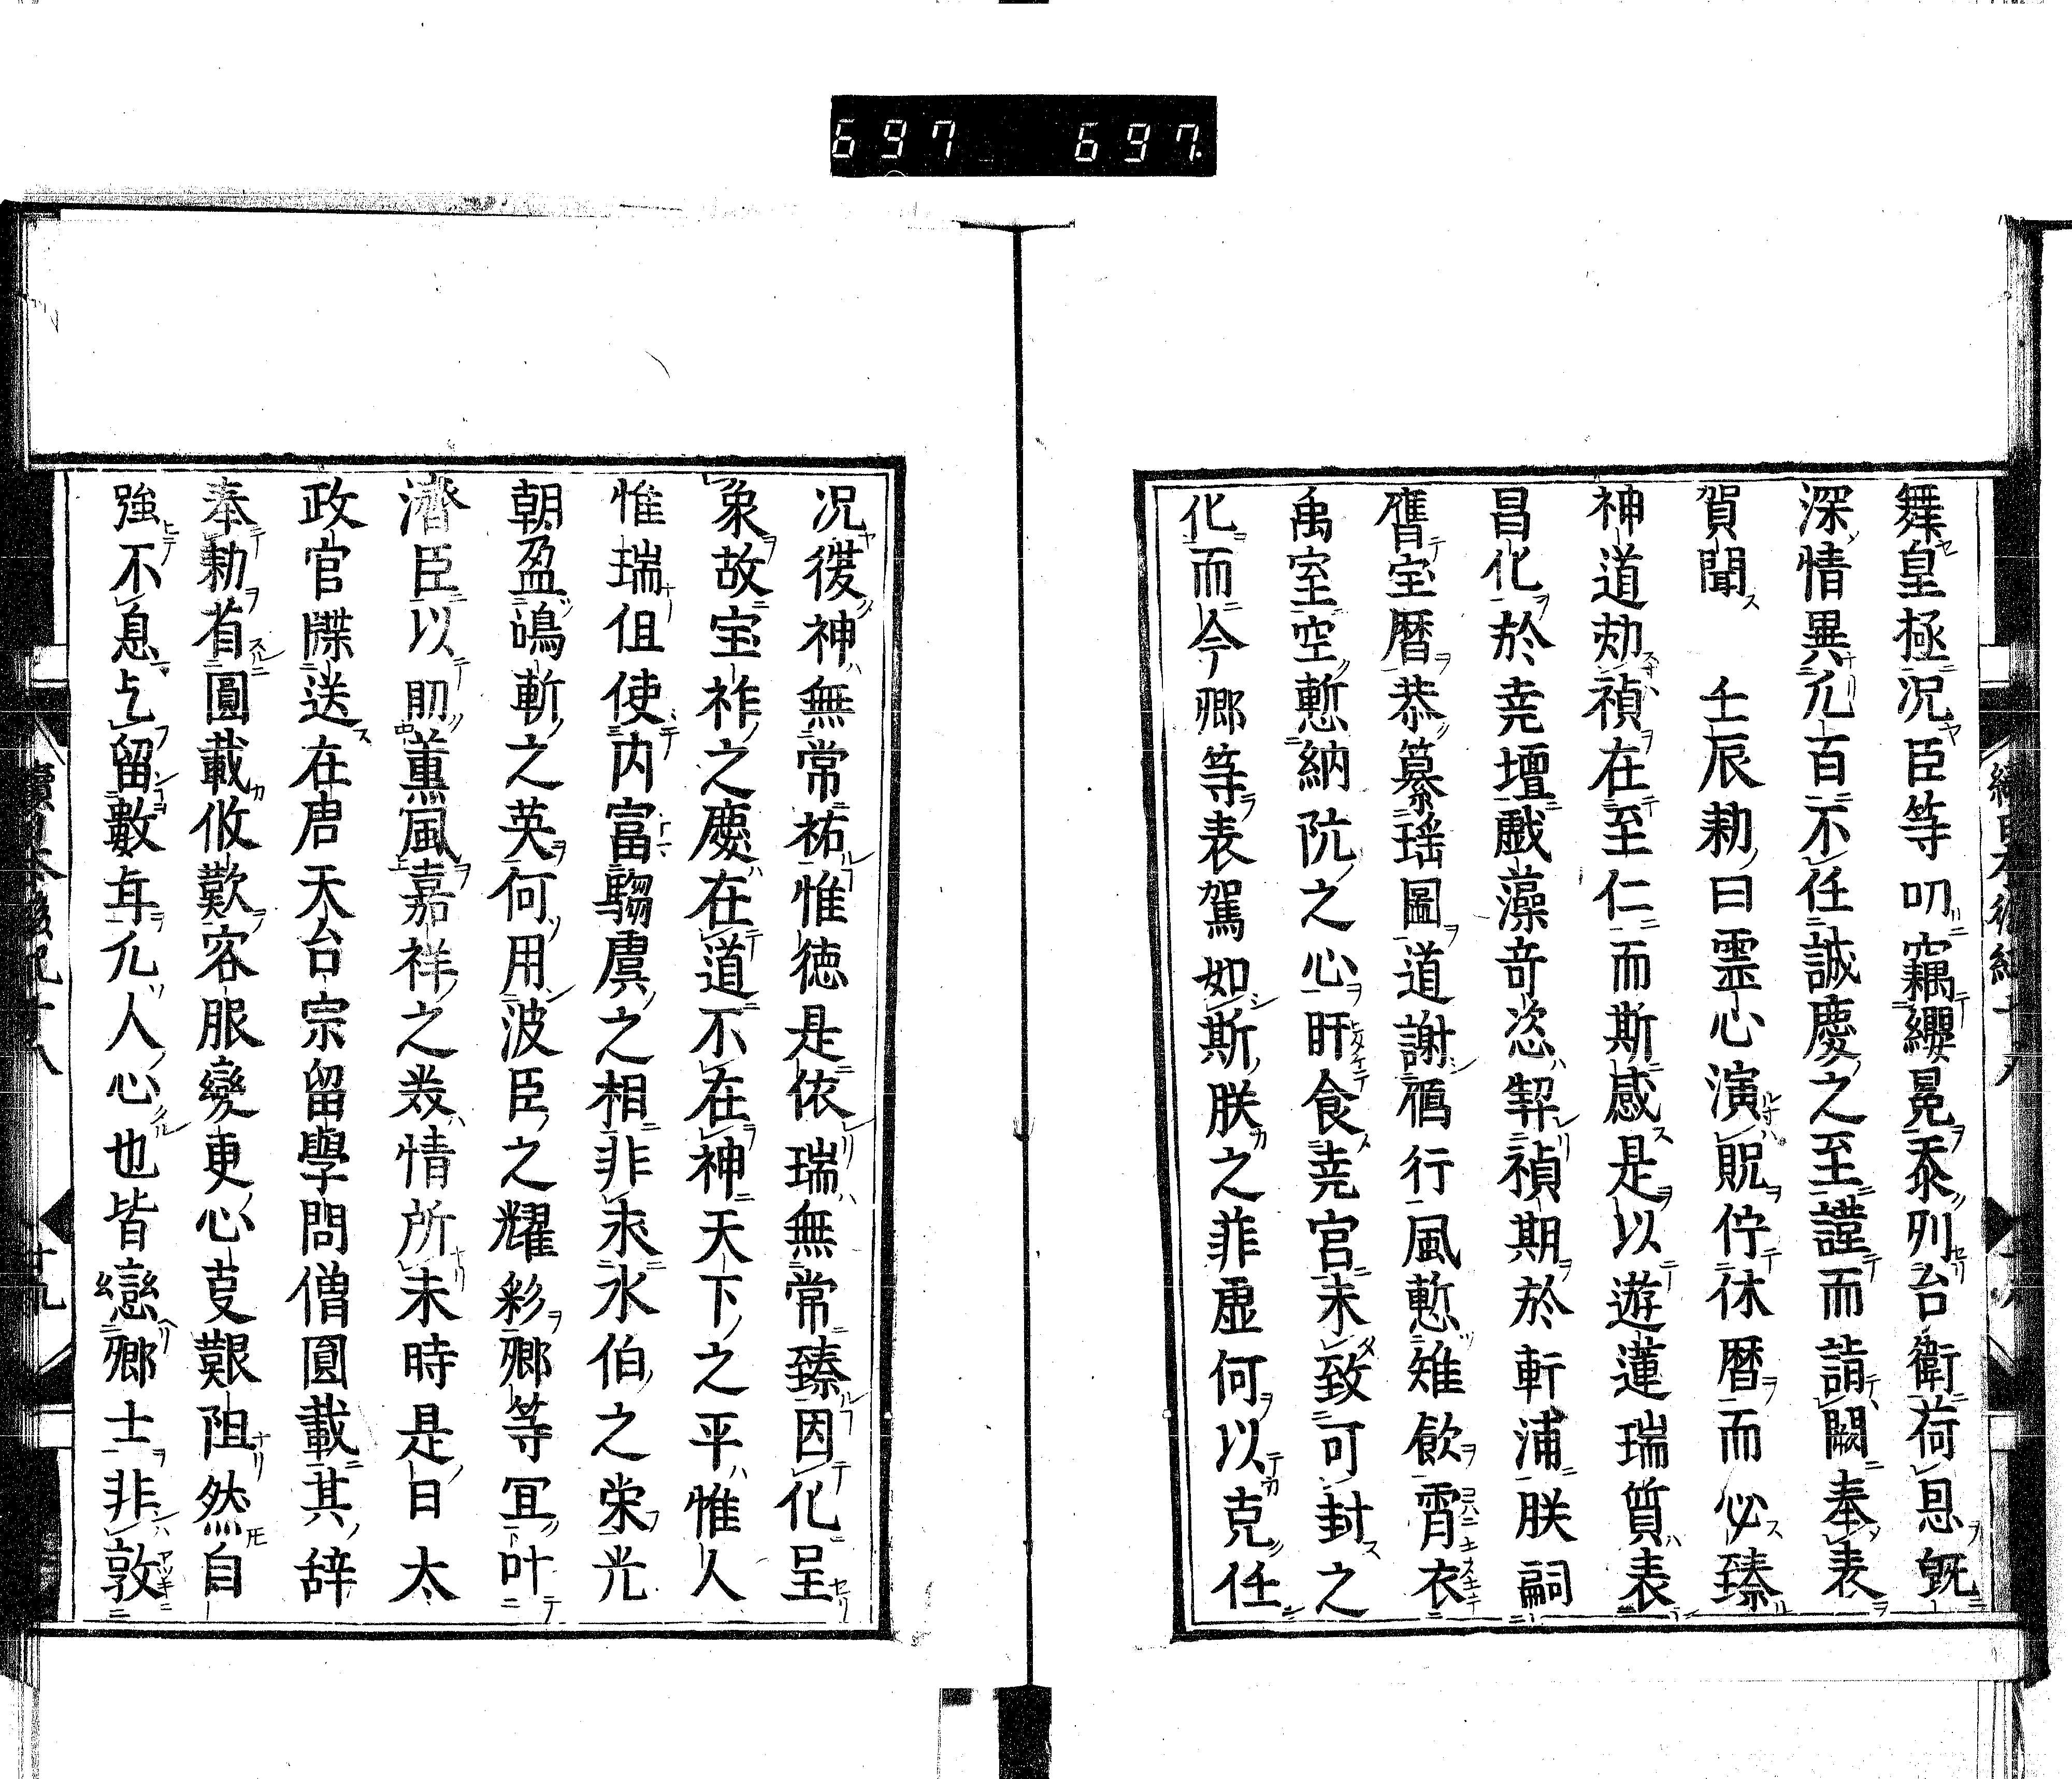 697 697
舞皇極况臣等叨竊纓冕忝列台衛荷恩既
深情異凢百不任誠慶之至謹而詣闕奉表
賀聞 壬辰勅曰靈心演貺佇休暦而必臻
神道効禎在至仁而斯感是以遊蓮瑞質表
昌化於尭壇戯藻奇恣契禎期於軒浦朕嗣
膺宝暦恭纂瑶圖道謝循行風慙雉飲霄衣
禹室空慙納阬之心旰食尭宮未致可封之
化而今卿等表駕如斯朕之菲虚何以克任
况復神無常祐惟徳是依瑞無常臻因化呈
象故宝祚之慶在道不在神天下之平惟人
惟瑞伹使内富騶虞之相非求水伯之栄光
朝盈鳴斬之英何用波臣之耀彩卿等冝叶
濟臣以助薫風嘉祥之美情所未時是日太
政官牒送在唐天台宗留學問僧圓載其辞
奉勅省圓載攸歎容服變更心事艱阻然自
強不息乞留數年凢人心也皆戀郷士非敦
續日本後紀十八 廿九